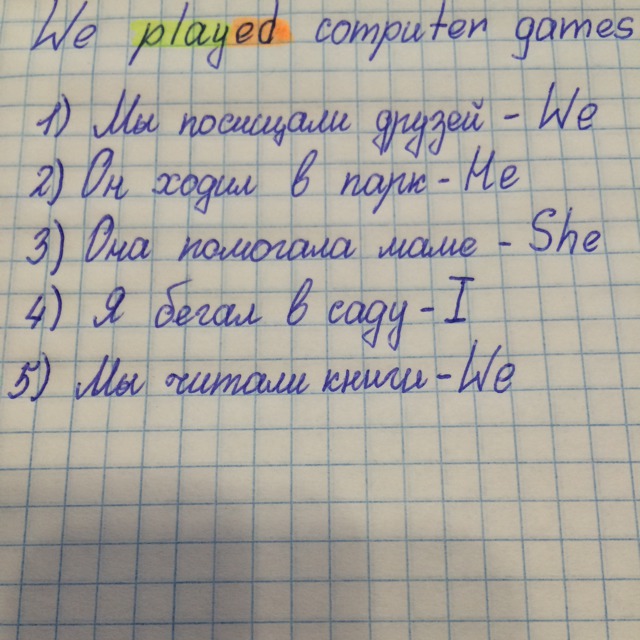 We played computer games
1) Мы посищали друзей - We
2) Он ходил в парк - He
3) Она помогала маме - She
4) Я бегал в саду - I
5) Мы читали книги - We